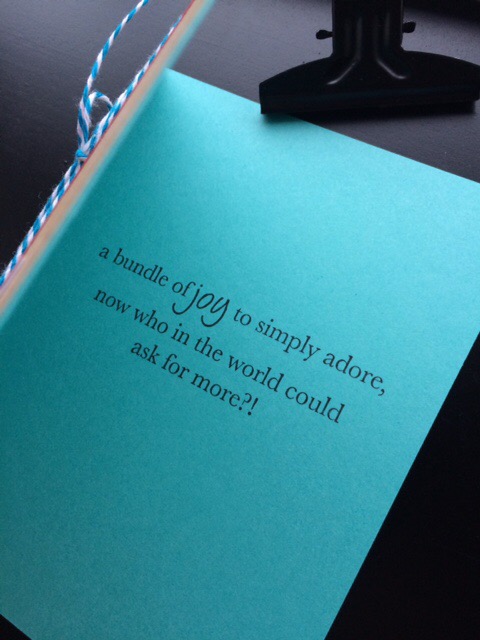 a bundle of joy to simply adore,
now who in the world could
ask for more?!